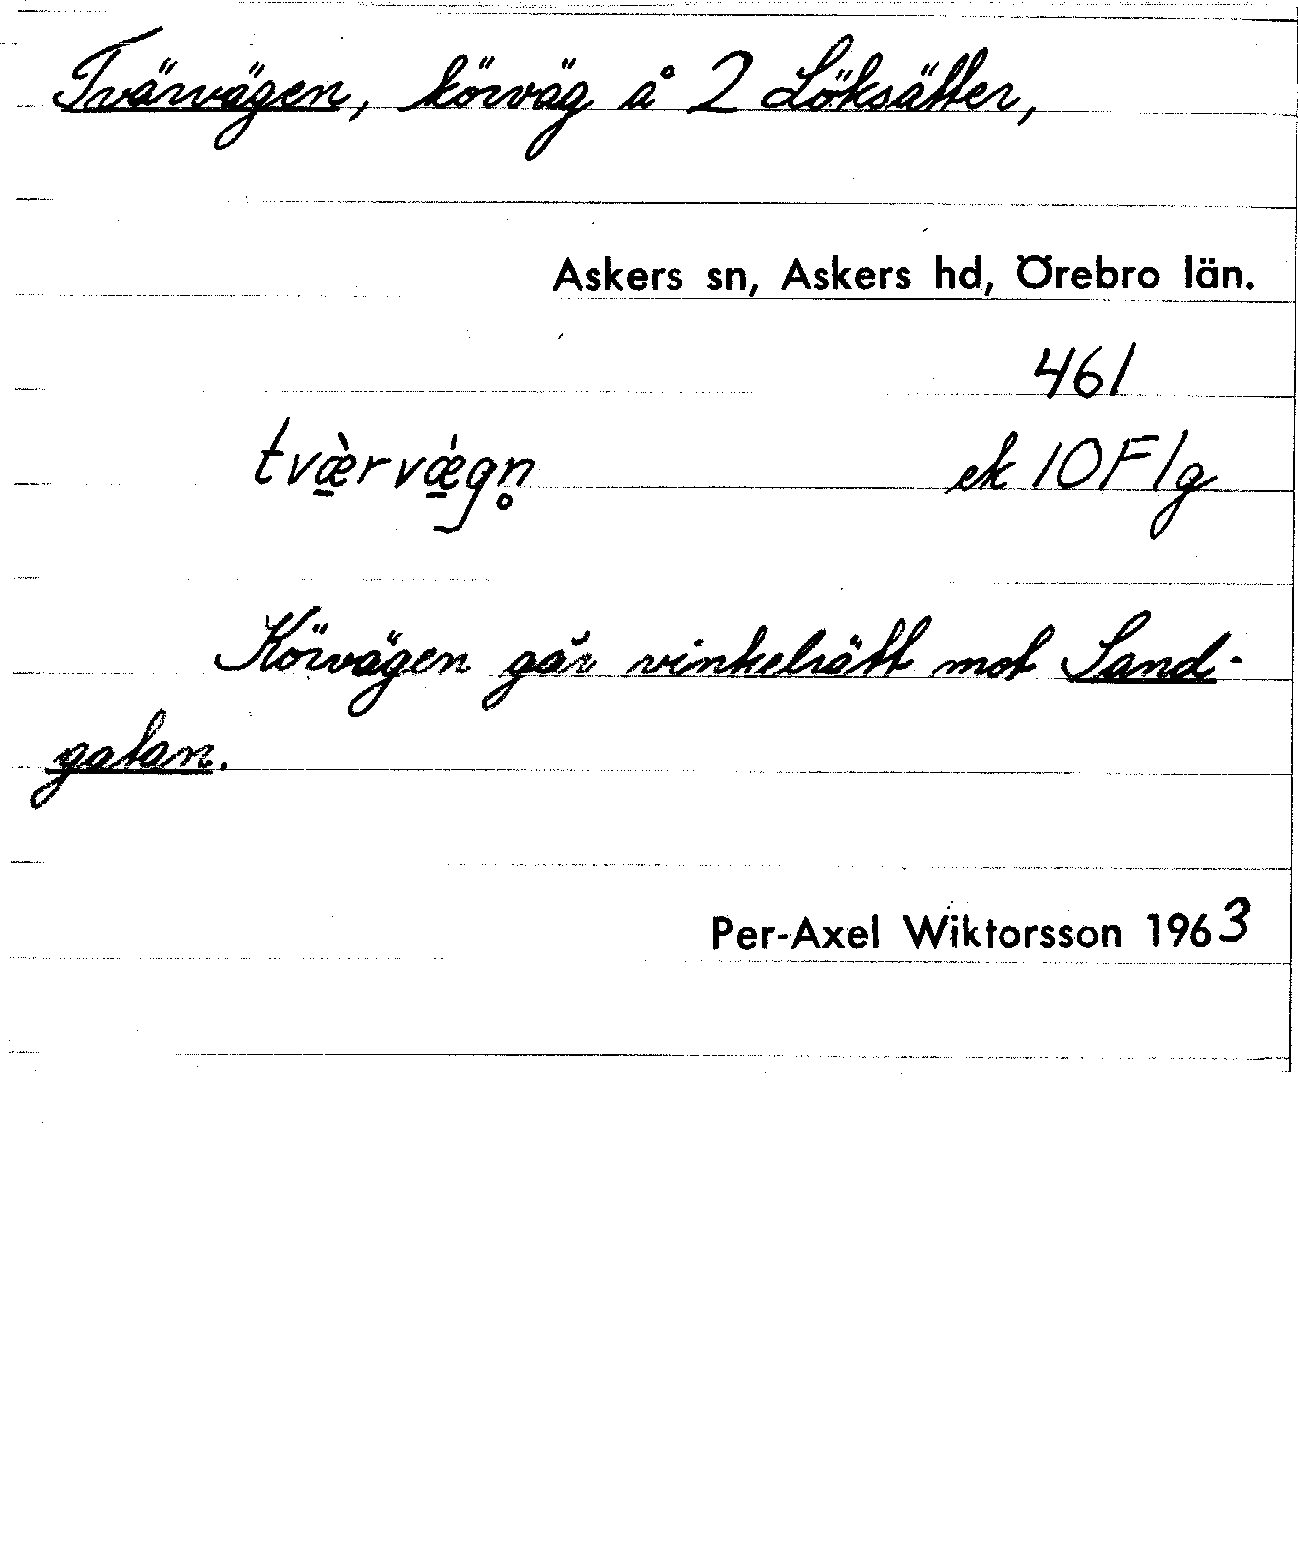 Tvärvägen, körväg å 2 Löksätter,
Askers sn, Askers hd, Örebro län.
461
tvæ̠̀rvǽ̠gn̥
ek 10F1g
Körvägen går vinkelrätt mot Sand-
gatan.
Per-Axel Wiktorsson 1963